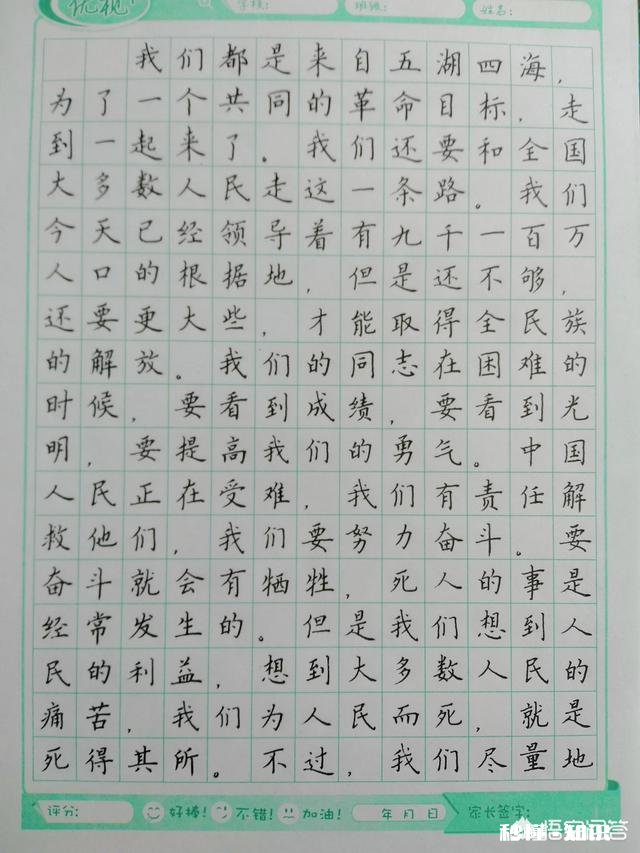 优视
学校: 班级: 姓名:
我们都是来自五湖四海，
为了一个共同的革命目标，走
到一起来了。我们还要和全国
大多数人民走这一条路。我们
今天已经领导着有九千一百万
人口的根据地，但是还不够，
还要更大些，才能取得全民族
的解放。我们的同志在困难的
时候，要看到成绩，要看到光
明，要提高我们的勇气。中国
人民正在受难，我们有责任解
救他们，我们要努力奋斗。要
奋斗就会有牺牲，死人的事是
经常发生的。但是我们想到人
民的利益，想到大多数人民的
痛苦，我们为人民而死，就是
死得其所。不过，我们尽量地
评分: 好棒! 不错! 加油! 年 月 日 家长签字:
悟空问答
秒懂知识